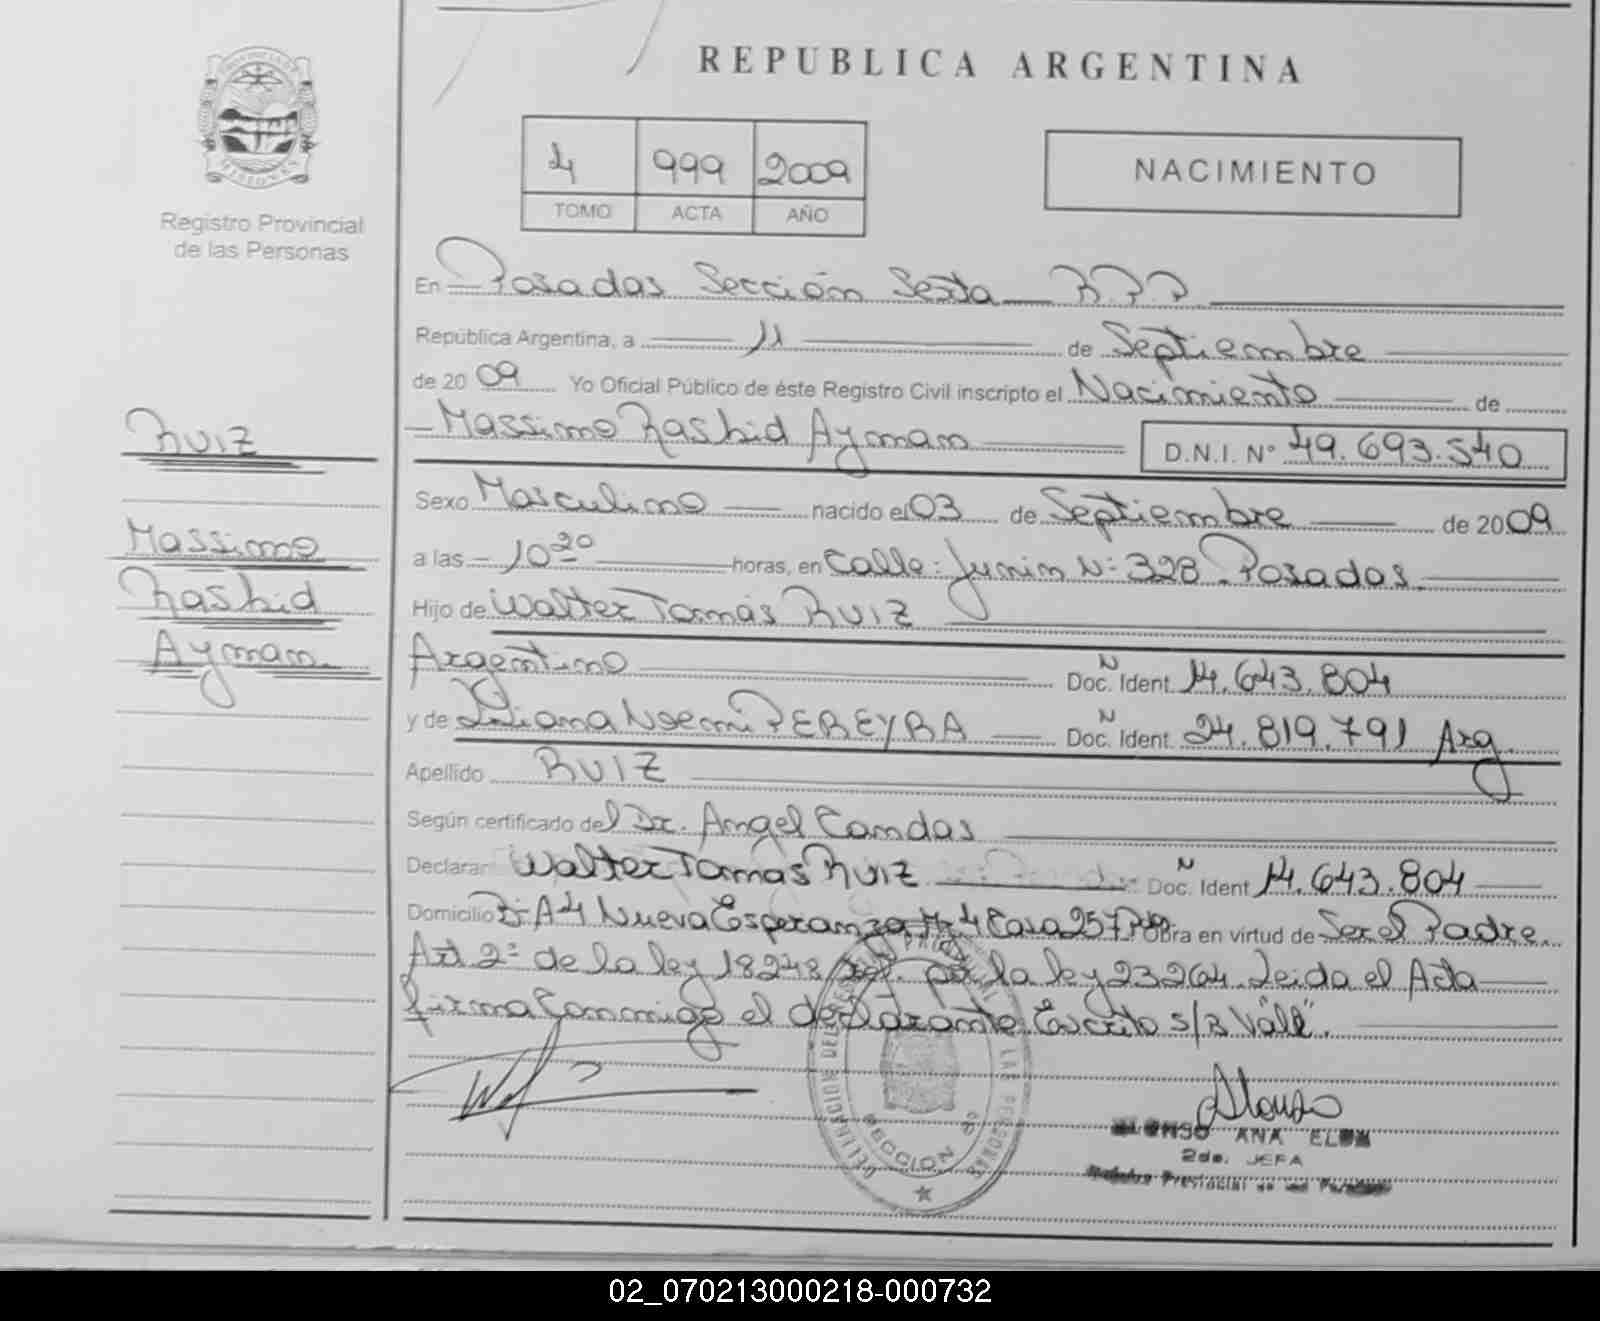 REPUBLICA ARGENTINA
4 999 2009
TOMO ACTA AÑO
NACIMIENTO
MISIONES
Registro Provincial
de las Personas
RUIZ
Massimo
Rashid
Ayman
En Posadas Sección Sexta R.P.P
República Argentina, a 11 de Septiembre
de 2009 Yo Oficial Público de éste Registro Civil inscripto el Nacimiento de
Massimo Rashid Ayman D.N.I. Nº 49.693.540
Sexo Masculino nacido el 03 de Septiembre de 2009
a las 10 20 horas, en Calle: Junin Nº 328 Posadas
Hijo de Walter Tomás RUIZ
Argentino N Doc. Ident. 14.643.804
y de Liliana Noemi PEREYRA N Doc. Ident. 24.819.791 Arg
Apellido RUIZ
Según certificado del Dr. Angel Candas
Declarar Walter Tomás Ruiz N Doc. Ident 14.643.804
Domicilio A4 Nueva Esperanza Mz 4 Casa 257 Obra en virtud de Ser el Padre.
Art 2º de la ley 18248 por la ley 23264. Leida el Acta
firma Conmigo el declarante Escrito s/R "Vale".
SECCION 6º
ALONSO ANA
2da. JEFA
02_070213000218-000732